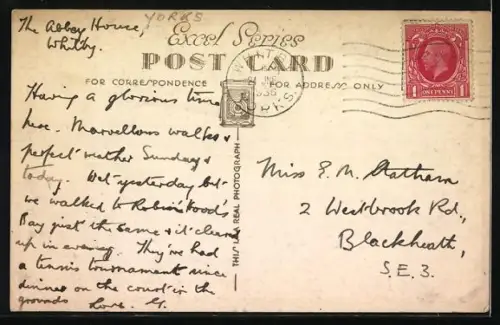 YORKS
The Abbey House,
Whitby.
Excel Series
POST CARD
FOR CORRESPONDENCE
FOR ADDRESS ONLY
WHITBY
1936
YORKS.
ONE PENNY
1 1
THIS IS A REAL PHOTOGRAPH
Having a glorious time
here. Marvellous walks &
perfect weather Sunday &
today. Wet yesterday but
we walked to Robin Hood's
Bay just the same & it cleared
up in evening. They've had
a tennis tournament since
dinner on the court in the
grounds Love
Miss E. M. Statham
2 Westbrook Rd.,
Blackheath,
S.E.3.